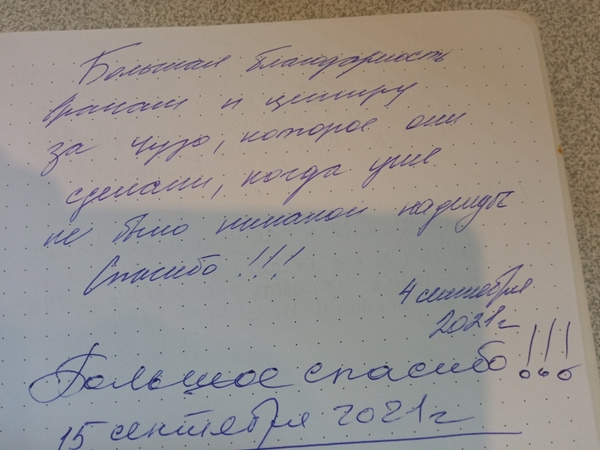 Большая благодарность
врачам и центру
за чудо, которое они
сделали, когда уже
не было никакой надежды
Спасибо!!!
4 сентября
2021 г
Большое спасибо!!!
15 сентября 2021 г